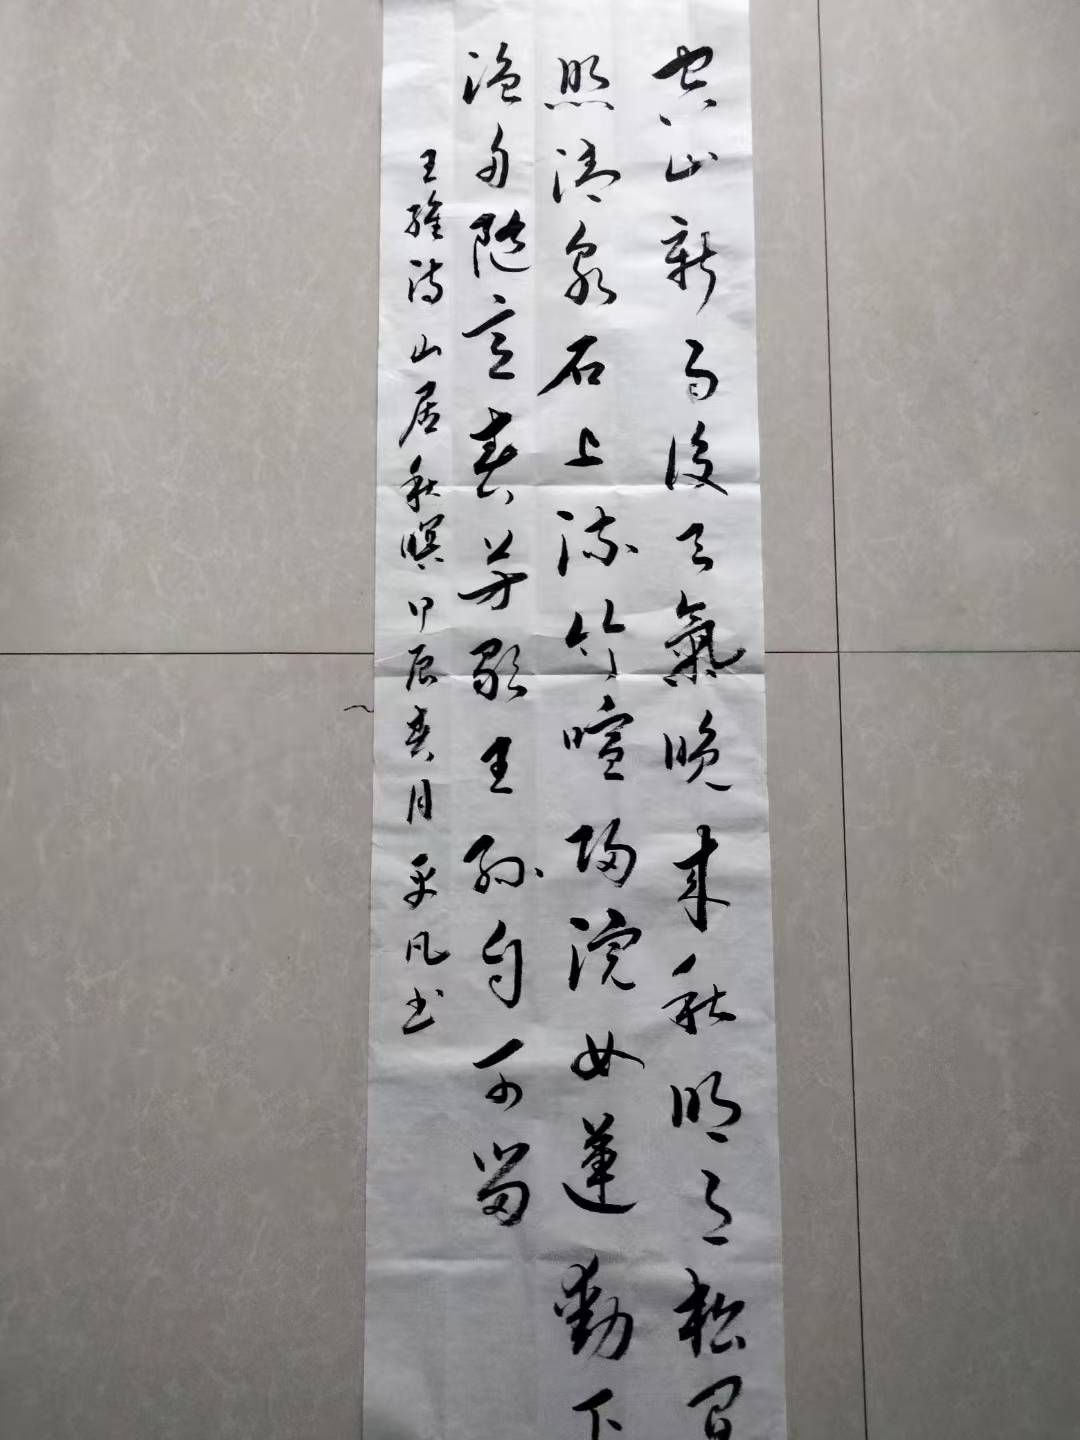 空山新雨後天氣晚来秋明月松間
照清泉石上流竹喧歸浣女蓮動下
漁舟随意春芳歇王孫自可留
王維诗山居秋暝甲辰春月平凡书